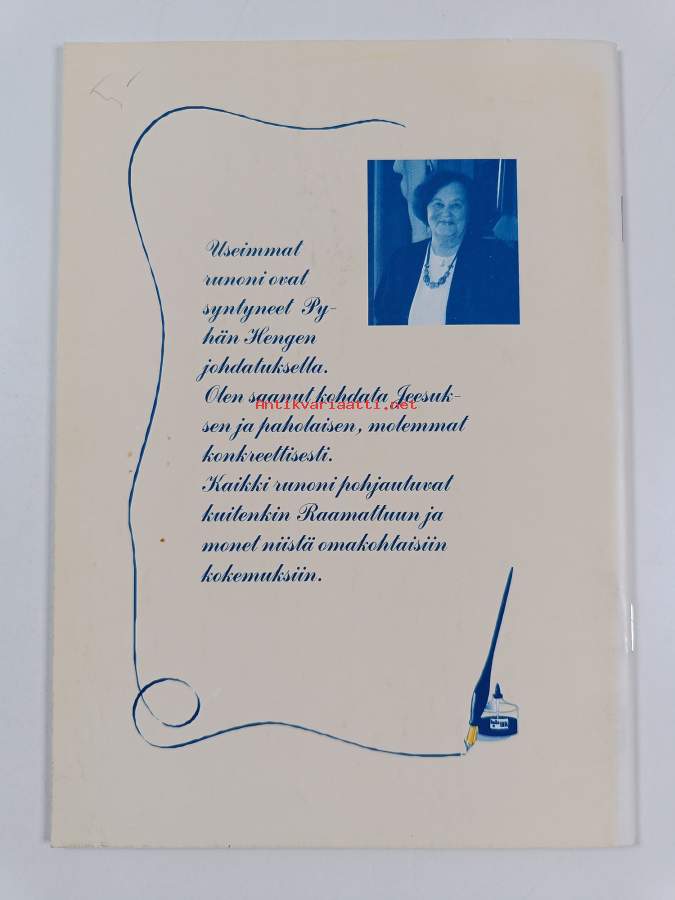 Useimmat
runoni ovat
syntyneet Py-
hän Hengen
johdatuksella.
Olen saanut kohdata Jeesuk-
Antikvariaatti.net
sen ja paholaisen, molemmat
konkreettisesti.
Kaikki runoni pohjautuvat
kuitenkin Raamattuun ja
monet niistä omakohtaisiin
kokemuksiin.